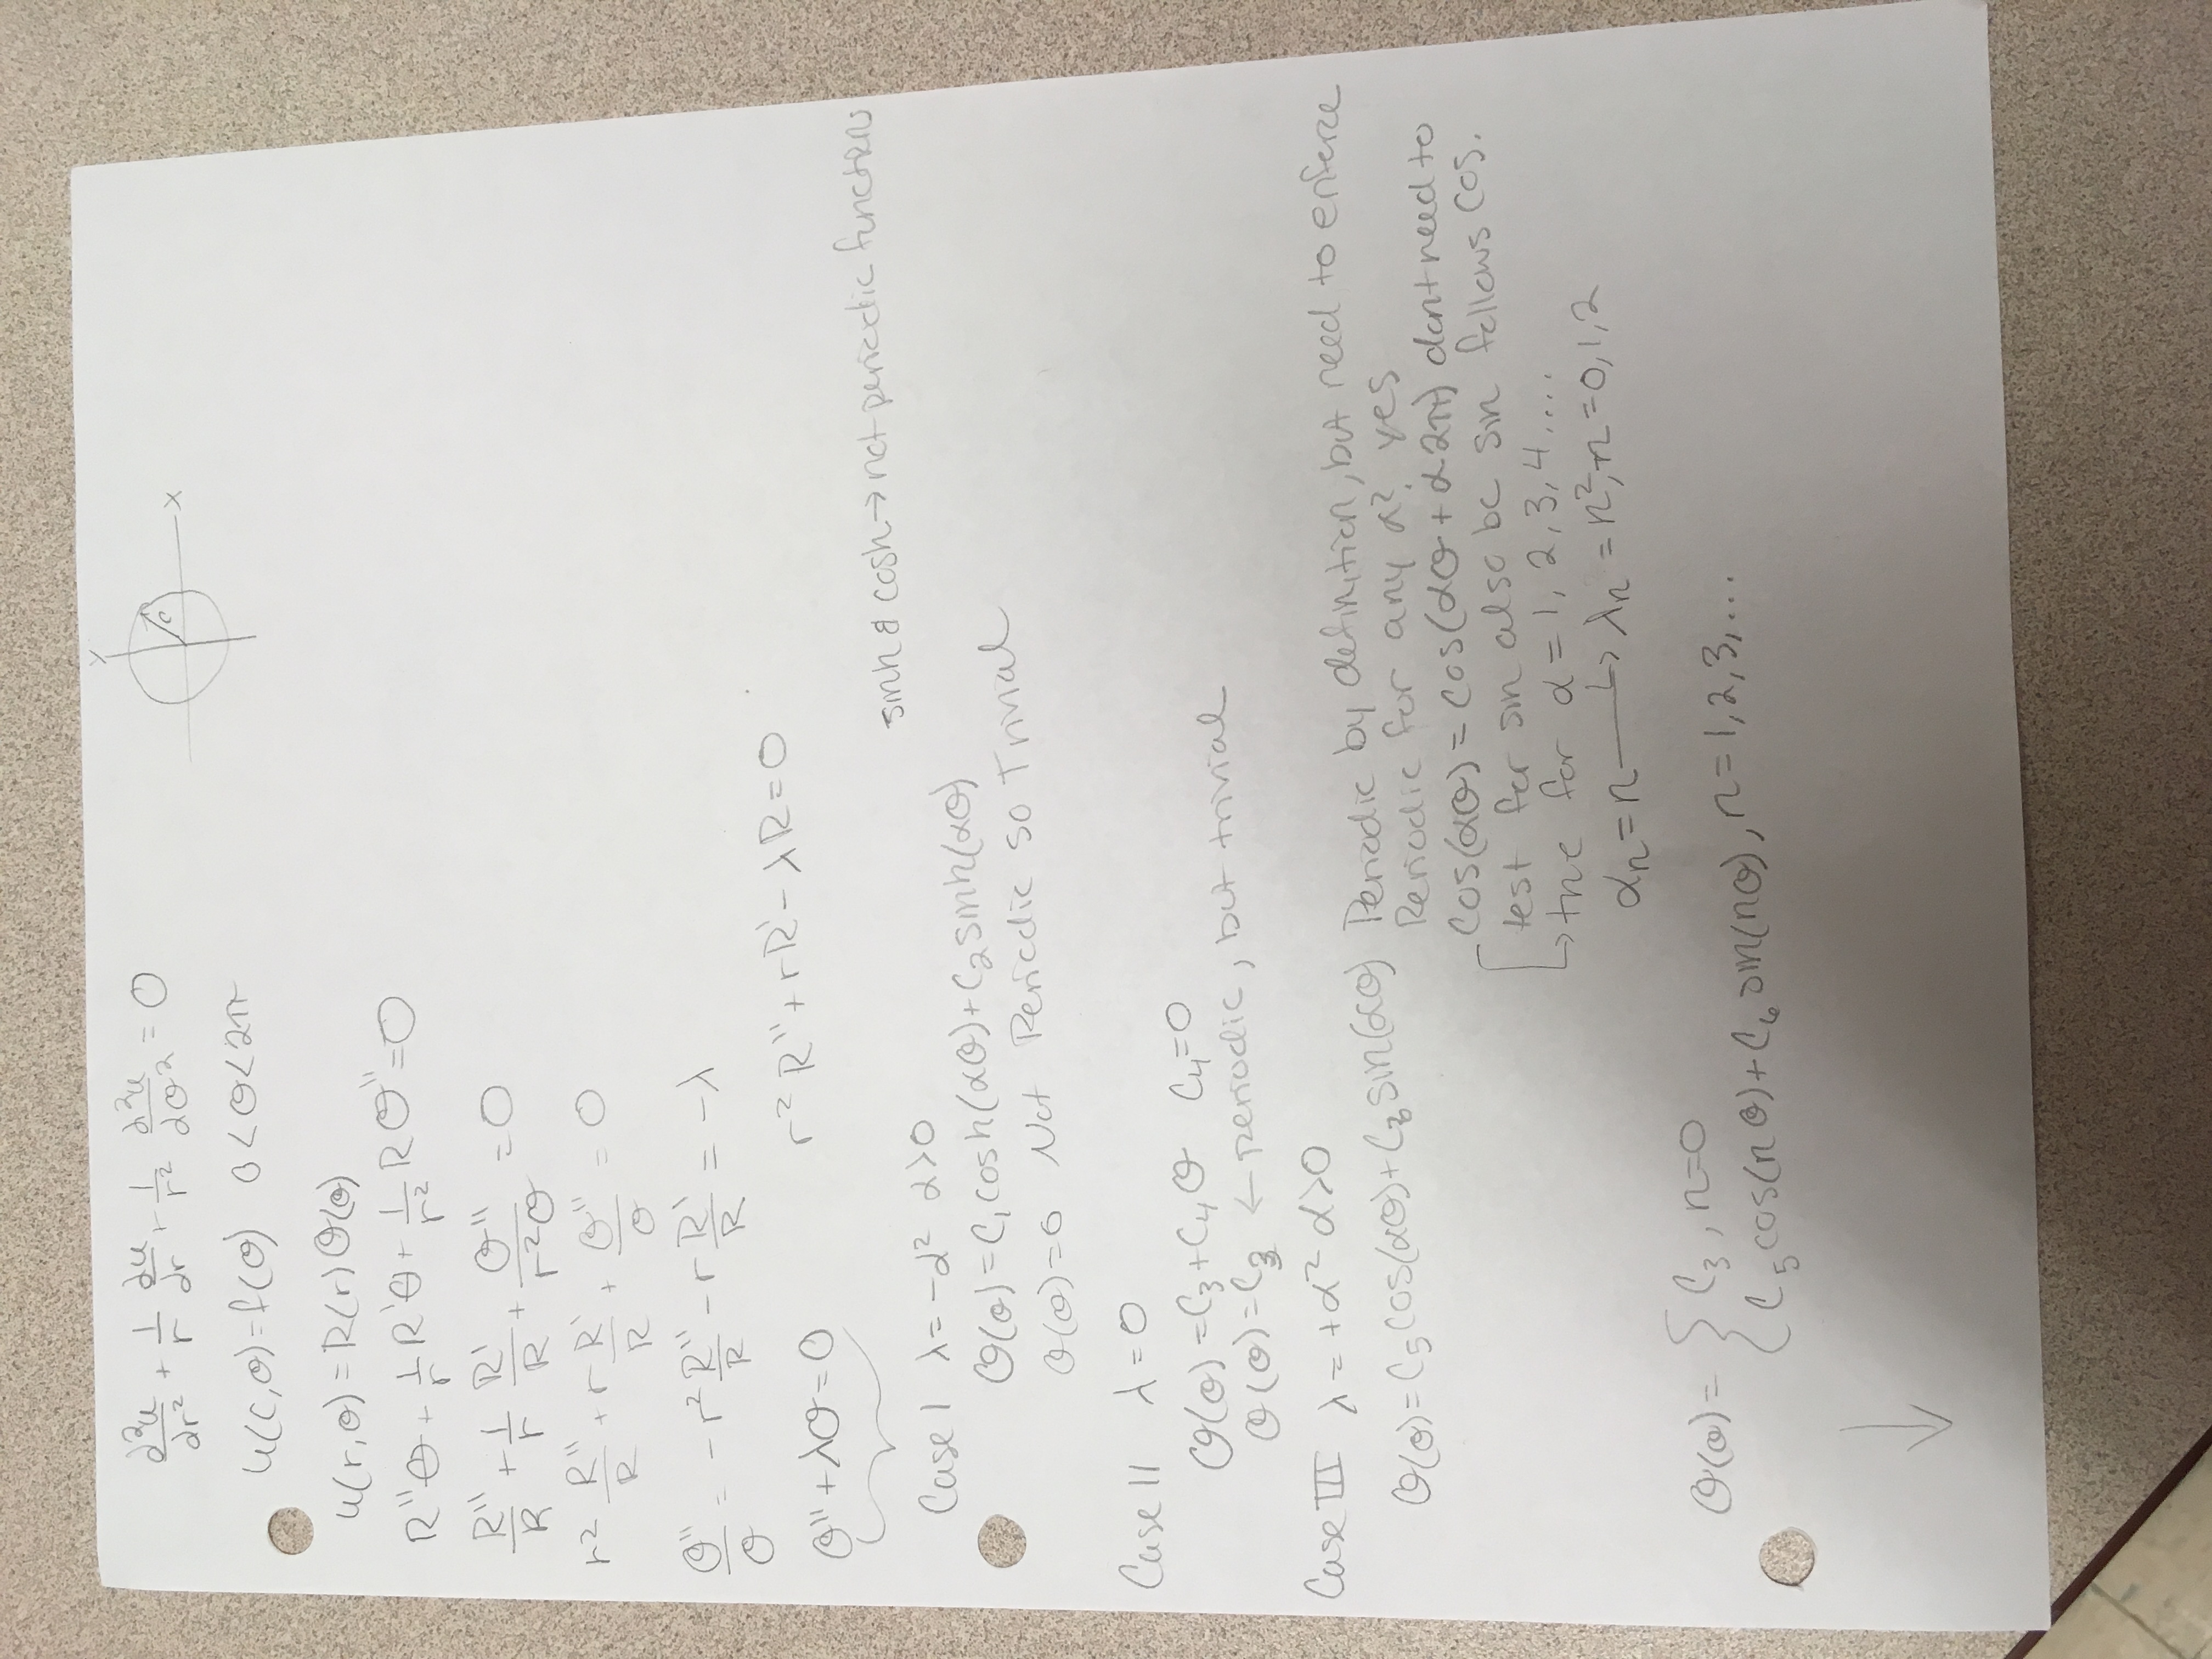 ∂²u/∂r² + 1/r ∂u/∂r + 1/r² ∂²u/∂θ² = 0
y
x
c
u(c,θ)=f(θ) 0<θ<2π
u(r,θ)=R(r)Θ(θ)
R''Θ + 1/r R'Θ + 1/r² RΘ''=0
R''/R + 1/r R'/R + Θ''/r²Θ = 0
r² R''/R + r R'/R + Θ''/Θ = 0
Θ''/Θ = -r² R''/R - r R'/R = -λ
Θ''+λΘ=0 r²R''+rR'-λR=0
sinh & cosh → not periodic functions
Case I λ=-α² α>0
Θ(θ)=C₁cosh(αθ)+C₂sinh(αθ)
Θ(θ)=0 Not Periodic so Trivial
Case II λ=0
Θ(θ)=C₃+C₄θ C₄=0
Θ(θ)=C₃ ← periodic, but trivial
Case III λ=+α² α>0
Θ(θ)=C₅cos(αθ)+C₆sin(αθ) Periodic by definition, but need to enforce
Periodic for any α? yes
cos(αθ)=cos(αθ+α2π) dont need to
test for sin also bc sin follows cos.
→ true for α=1,2,3,4....
αₙ=n → λₙ=n², n=0,1,2
Θ(θ)= { C₃, n=0
C₅cos(nθ)+C₆sin(nθ), n=1,2,3,...
↓